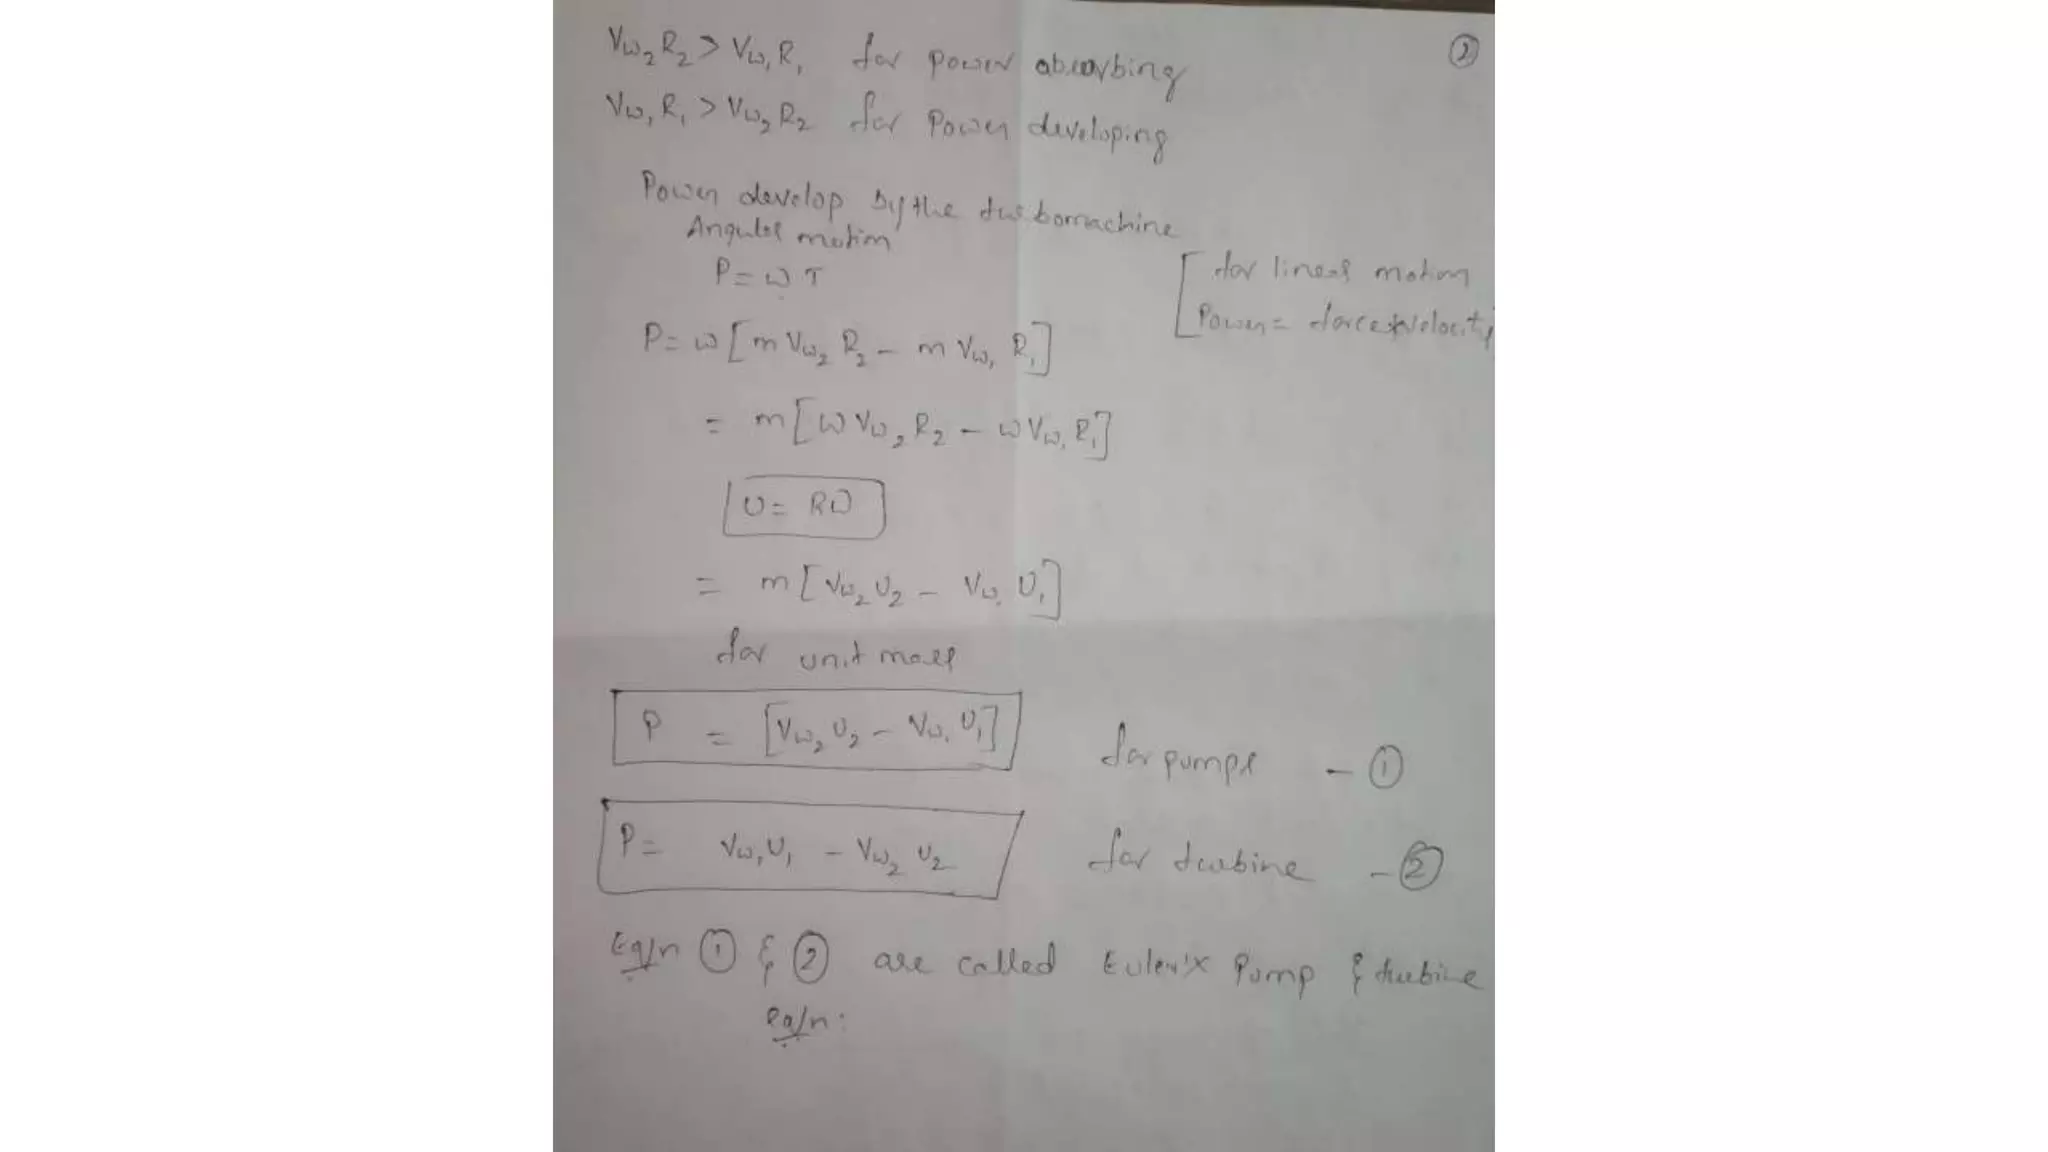 ②
Vw₂ R₂ > Vw₁ R₁ for power absorbing
Vw₁ R₁ > Vw₂ R₂ for Power developing
Power develop by the turbomachine
Angular motion
P = ω T
[for linear motion
Power = force * Velocity
P = ω [m Vw₂ R₂ - m Vw₁ R₁]
= m [ω Vw₂ R₂ - ω Vw₁ R₁]
U = Rω
= m [Vw₂ U₂ - Vw₁ U₁]
for unit mass
P = [Vw₂ U₂ - Vw₁ U₁] for pumps - ①
P = Vw₁ U₁ - Vw₂ U₂ for turbine - ②
Eq/n ① & ② are called Euler's Pump & turbine
eq/n: